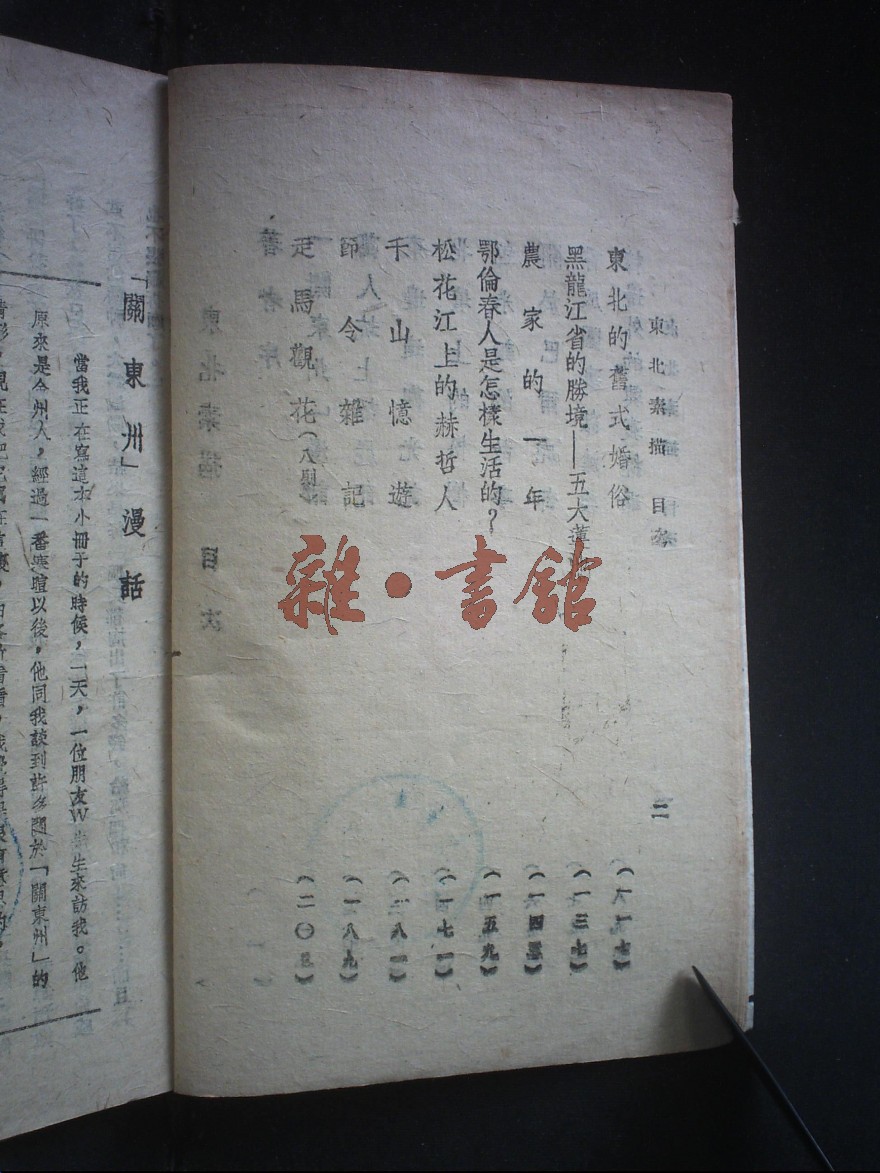 東北素描 目次 二
東北的舊式婚俗 (一一七)
黑龍江省的勝境——五大蓮 (一三七)
農家的一年 (一四三)
鄂倫春人是怎樣生活的? (一五九)
松花江上的赫哲人 (一七一)
千山憶遊 (一八一)
師令雜記 (一八九)
走馬觀花(八 (二〇三)
「關東州」漫話
當我正在寫這本小冊子的時候,一天,一位朋友W先生來訪我。他
原來是金州人,經過一番寒暄以後,他同我談到許多關於「關東州」的
雜·書館